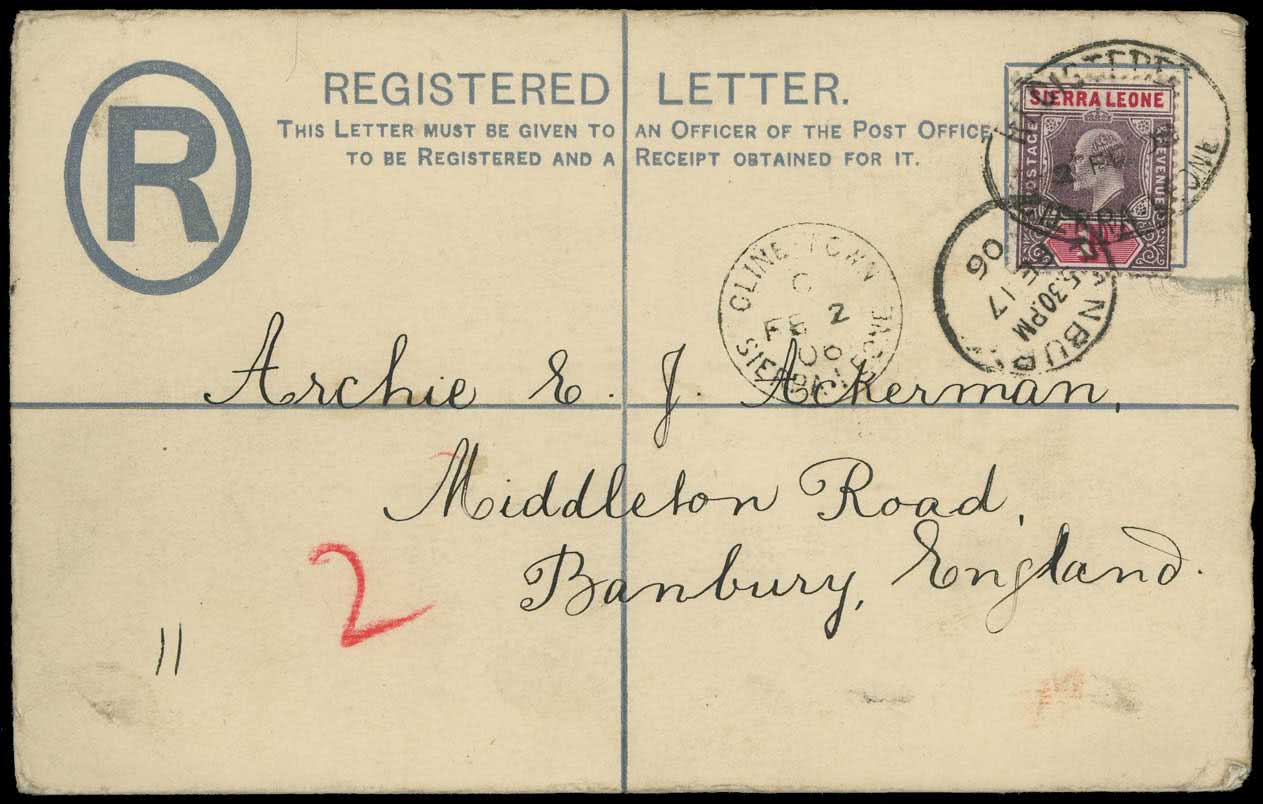 R
REGISTERED LETTER.
THIS LETTER MUST BE GIVEN TO AN OFFICER OF THE POST OFFICE
TO BE REGISTERED AND A RECEIPT OBTAINED FOR IT.
SIERRA LEONE
POSTAGE
REVENUE
REGISTERED
CLINE TOWN
C
FE 2
06
SIERRA LEONE
BANBURY
5.30PM
FE 17
06
Archie E. J. Ackerman,
Middleton Road,
Banbury, England.
2
11